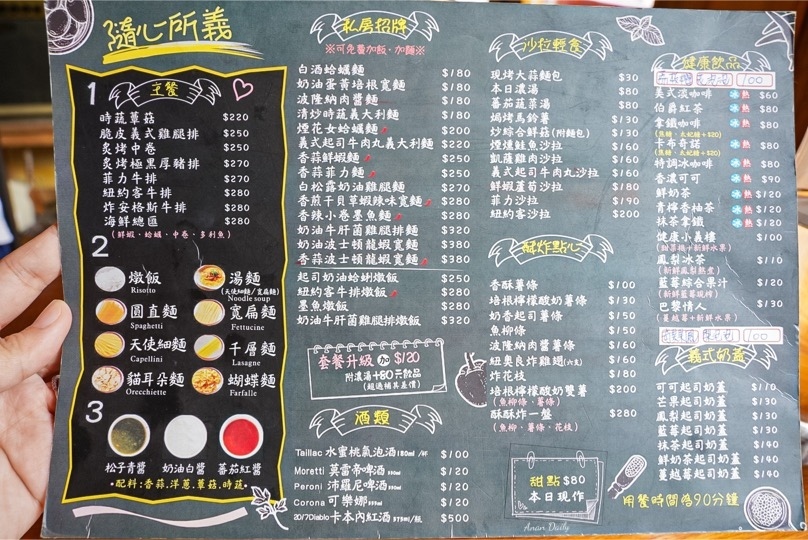 隨心所義
1 主餐
時蔬蕈菇 $220
脆皮義式雞腿排 $250
炙烤中卷 $250
炙烤極黑厚豬排 $270
菲力牛排 $270
紐約客牛排 $280
炸安格斯牛排 $280
海鮮總匯 $280
(鮮蝦、蛤蠣、中卷、多利魚)
2
燉飯 Risotto
湯麵 (天使細麵/寬扁麵) Noodle soup
圓直麵 Spaghetti
寬扁麵 Fettucine
天使細麵 Capellini
千層麵 Lasagne
貓耳朵麵 Orecchiette
蝴蝶麵 Farfalle
3
松子青醬
奶油白醬
蕃茄紅醬
•配料:香蒜.洋蔥.蕈菇.時蔬•
私房招牌
※可免費加飯、加麵※
白酒蛤蠣麵 $180
奶油蛋黃培根寬麵 $180
波隆納肉醬麵 $180
清炒時蔬義大利麵 $180
煙花女蛤蠣麵 $200
義式起司牛肉丸義大利麵 $220
香蒜鮮蝦麵 $250
香蒜菲力麵 $250
白松露奶油雞腿麵 $270
香煎干貝草蝦辣味寬麵 $280
香辣小卷墨魚麵 $280
奶油牛肝菌雞腿麵 $320
奶油波士頓龍蝦寬麵 $380
香蒜波士頓龍蝦寬麵 $380
起司奶油蛤蜊燉飯 $250
紐約客牛排燉飯 $280
墨魚燉飯 $280
奶油牛肝菌雞腿排燉飯 $320
套餐升級 加 $120
附濃湯+80元飲品
(超過補其差價)
酒類
Taillac 水蜜桃氣泡酒 $100
Moretti 莫雷帝啤酒 $120
Peroni 沛羅尼啤酒 $120
Corona 可樂娜 $120
20/7Diablo 卡本內紅酒 $500
沙拉輕食
現烤大蒜麵包 $30
本日濃湯 $80
蕃茄蔬菜湯 $80
焗烤馬鈴薯 $130
炒綜合鮮菇(附麵包) $130
煙燻鮭魚沙拉 $160
凱薩雞肉沙拉 $160
義式起司牛肉丸沙拉 $160
鮮蝦蘆筍沙拉 $180
菲力沙拉 $190
紐約客沙拉 $200
酥炸點心
香酥薯條 $100
培根檸檬酸奶薯條 $130
奶香起司薯條 $150
魚柳條 $150
波隆納肉醬薯條 $160
紐奧良炸雞翅(六支) $160
炸花枝 $180
培根檸檬酸奶雙薯 $200
(魚柳條、薯條)
酥酥炸一盤 $280
(魚柳條、薯條、花枝)
甜點 $80
本日現作
Anan Daily
健康飲品
100
美式淡咖啡 冰 熱 $60
伯爵紅茶 冰 熱 $80
拿鐵咖啡 冰 熱 $80
(焦糖、太妃糖+$20)
卡布奇諾 冰 熱 $80
(焦糖、太妃糖+$20)
特調冰咖啡 $80
香濃可可 冰 熱 $90
鮮奶茶 冰 熱 $120
青檸香柚茶 冰 熱 $120
抹茶拿鐵 冰 熱 $120
健康小義樓 $100
(甜菜根+新鮮水果)
鳳梨冰茶 $110
(新鮮鳳梨熬煮)
藍莓綜合果汁 $120
(新鮮藍莓現榨)
巴黎情人 $130
(蔓越莓+新鮮水果)
100
義式奶蓋
可可起司奶蓋 $110
芒果起司奶蓋 $130
鳳梨起司奶蓋 $130
藍莓起司奶蓋 $130
抹茶起司奶蓋 $140
鮮奶茶起司奶蓋 $140
蔓越莓起司奶蓋 $140
用餐時間為90分鐘